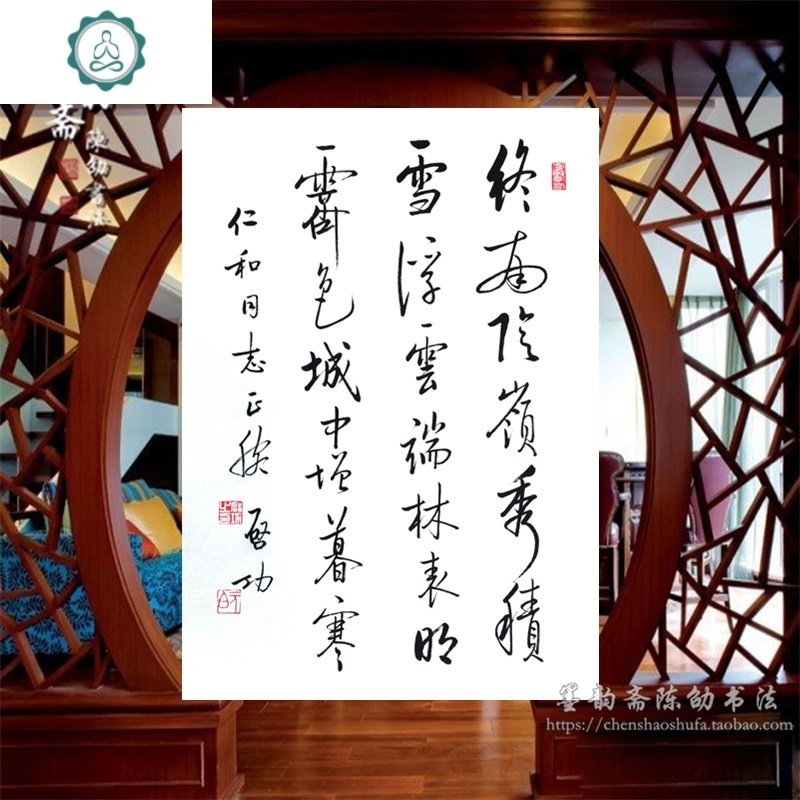 終南陰嶺秀積
雪浮雲端林表明
霽色城中增暮寒
仁和同志正腕
啓功
斋
陈劭书法
墨韵斋陈劭书法
https://chenshaoshufa.taobao.com